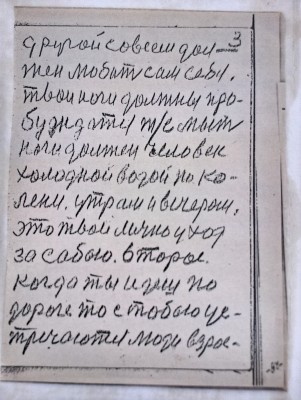 3
другой совсем дол-
жен любить сам себя,
твои ноги должны про-
буждатся т/е мыть
ноги должен человек
холодной водой по ко-
лени, утрам и вечером,
это твой лично уход
за сабою. второе.
когда ты идеш по
дороге то с тобою це-
тричаются люди взрос-